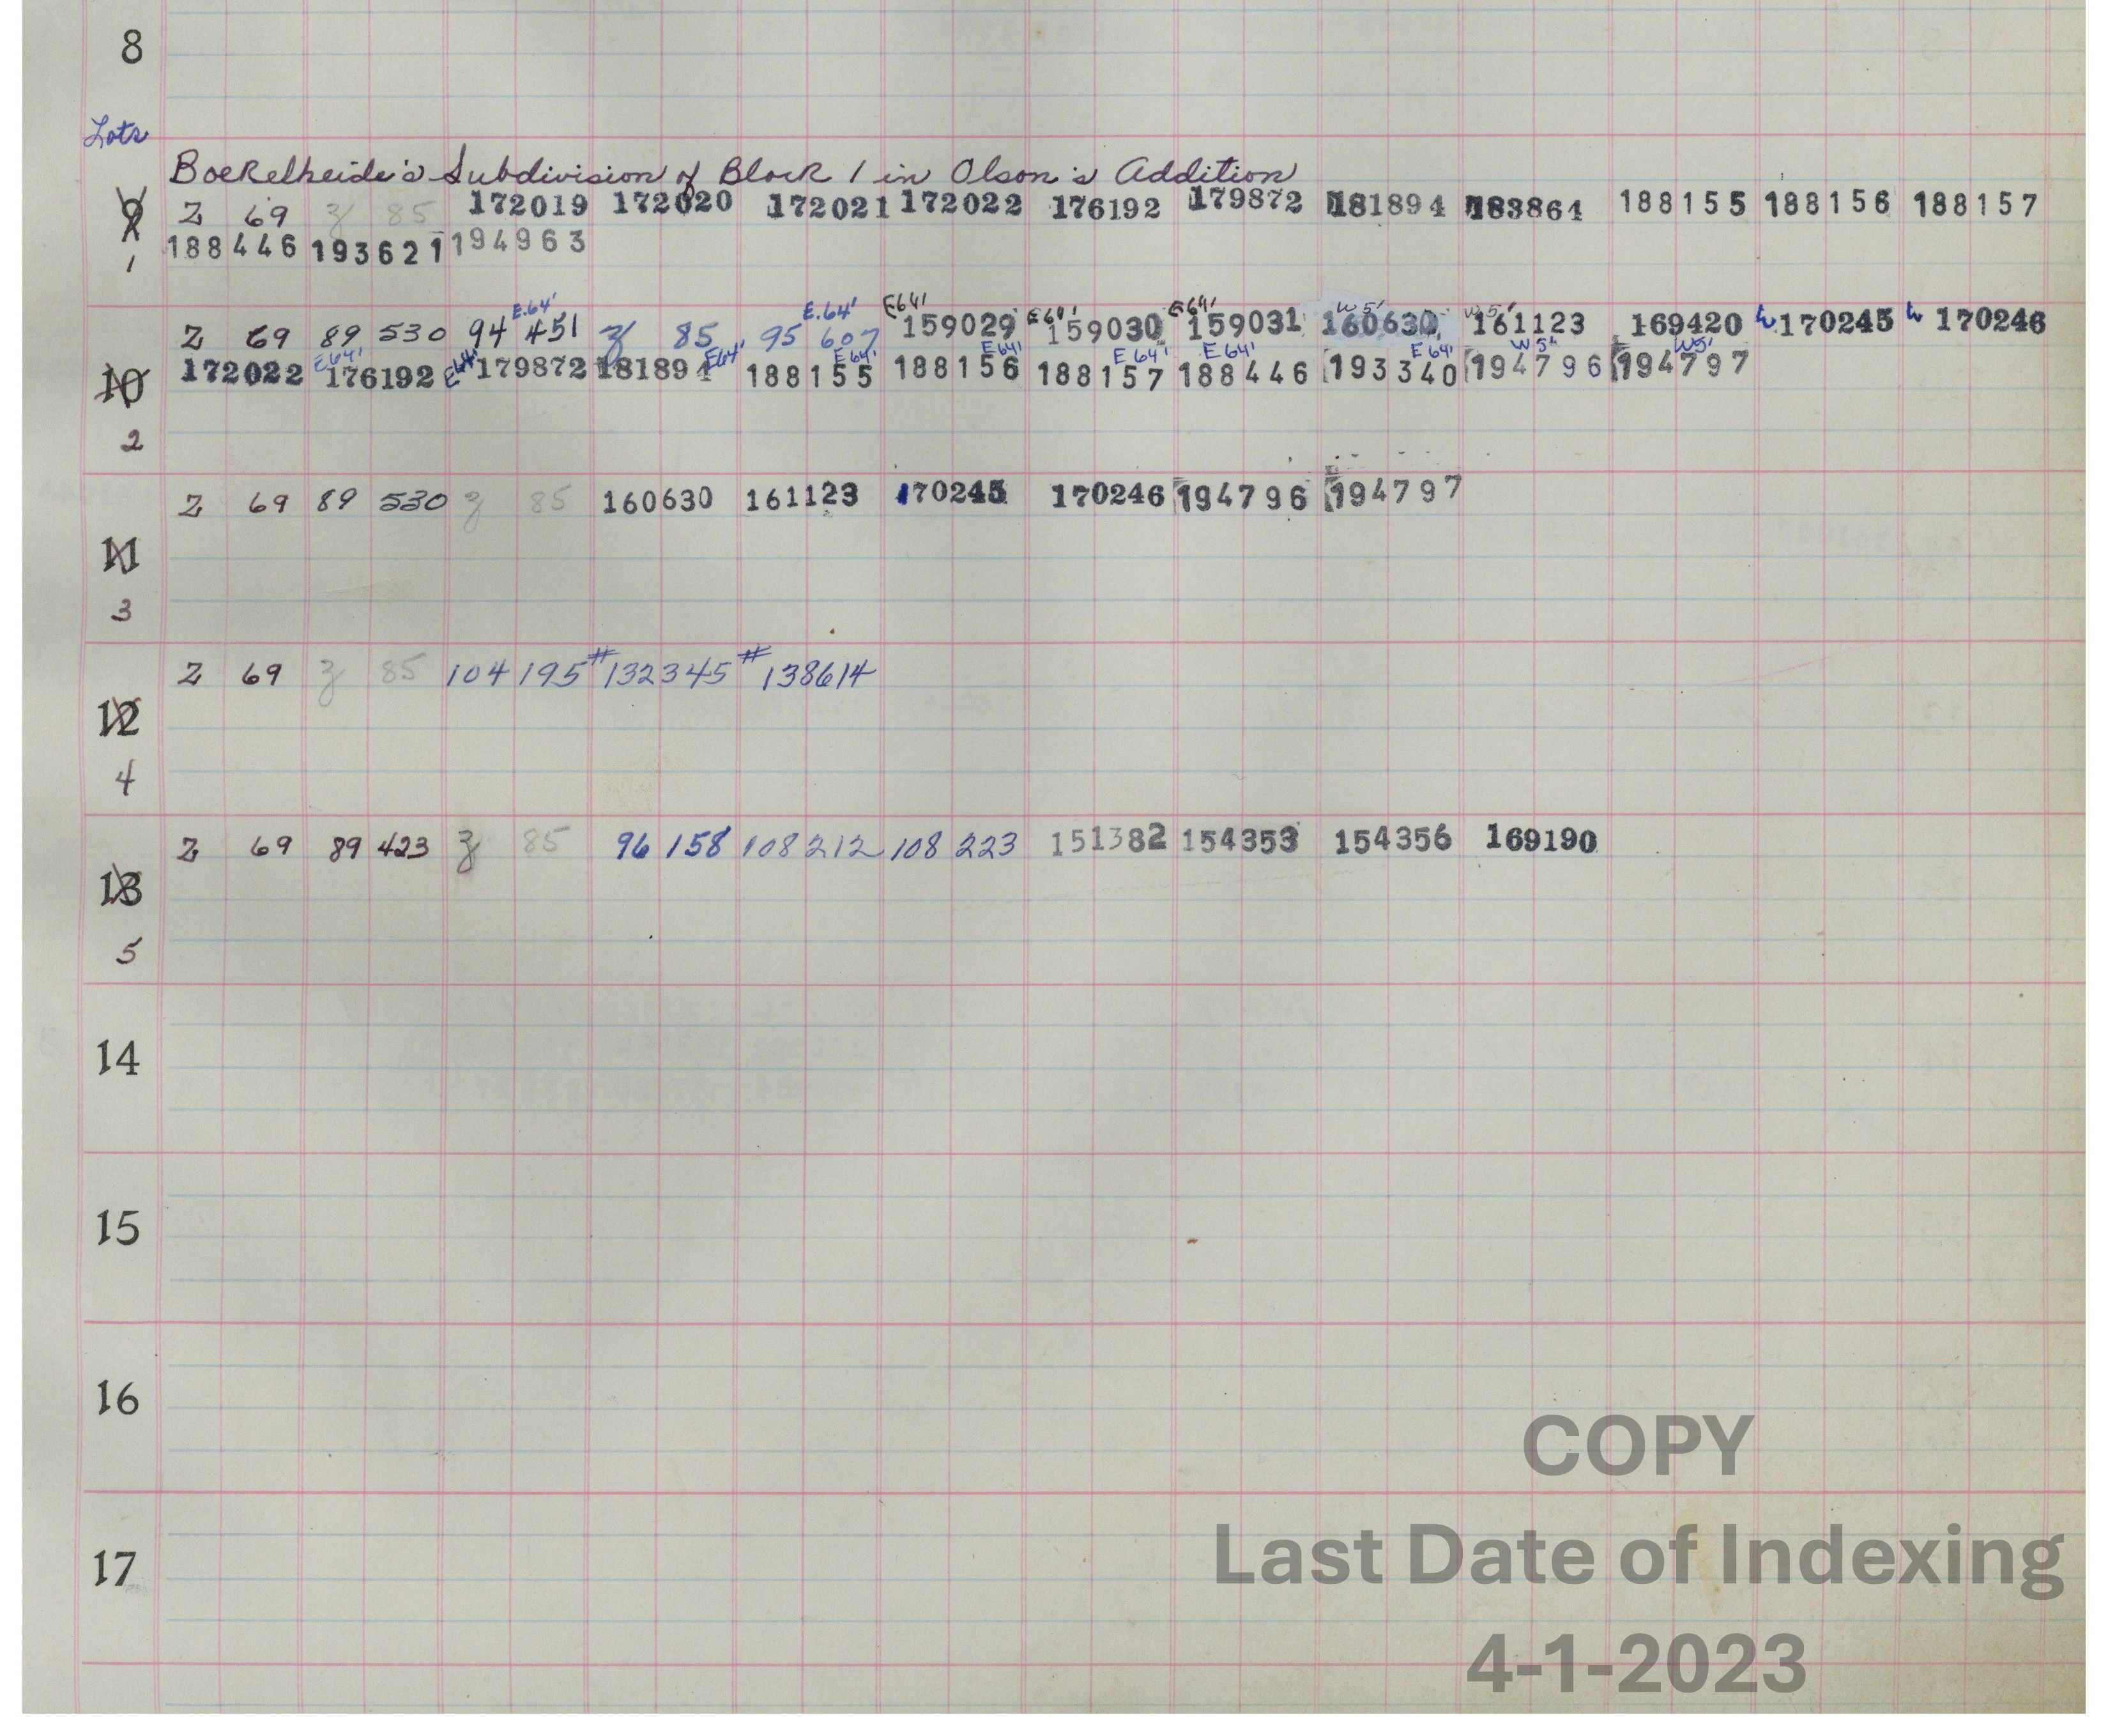 8
Lots
Boekelheide's Subdivision of Block 1 in Olson's Addition
9 Z 69 Z 85 172019 172020 172021 172022 176192 179872 181894 183864 188155 188156 188157
1 188446 193621 194963
E.64' E.64' E64' E64' E64' W5' W5'
Z 69 89 530 94 451 Z 85 95 607 159029 159030 159031 160630 161123 169420 170245 170246
E64' E64' E64' E64' E64' E64' E64' E64' W5' W5'
10 172022 176192 179872 181894 188155 188156 188157 188446 193340 194796 194797
2
Z 69 89 530 Z 85 160630 161123 170245 170246 194796 194797
11
3
Z 69 Z 85 104 195 #132345 #138614
12
4
Z 69 89 423 Z 85 96 158 108 212 108 223 151382 154353 154356 169190
13
5
14
15
16
17
COPY
Last Date of Indexing
4-1-2023